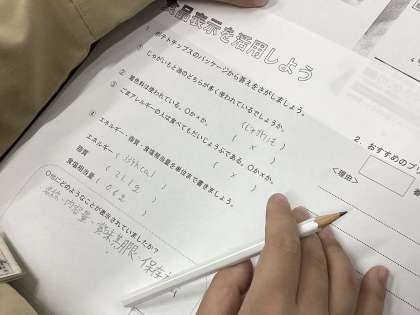 食品表示を活用しよう
1. ポテトチップスのパッケージから答えをさがしましょう。
① じゃがいもと油のどちらが多く使われているでしょうか。
( じゃがいも )
② 着色料は使われている。〇か×か。
( × )
③ ごまアレルギーの人は食べてもだいじょうぶである。〇か×か。
( × )
④ エネルギー・脂質・食塩相当量を単位まで書きましょう。
エネルギー (
kcal )
脂質 (
)
食塩相当量 (
)
〇他にどのようなことが表示されていましたか?
名称・内容量・賞味期限・保存方
2. おすすめのプリ
<理由>